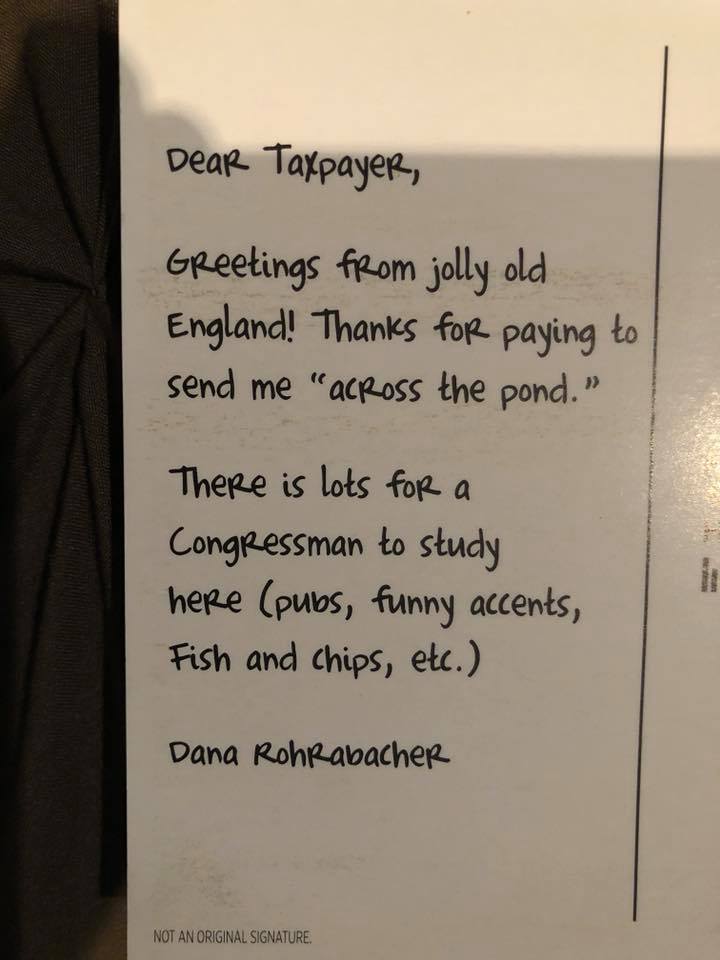 Dear Taxpayer,
Greetings from jolly old
England! Thanks for paying to
send me “across the pond.”
There is lots for a
Congressman to study
here (pubs, funny accents,
Fish and chips, etc.)
Dana Rohrabacher
NOT AN ORIGINAL SIGNATURE.